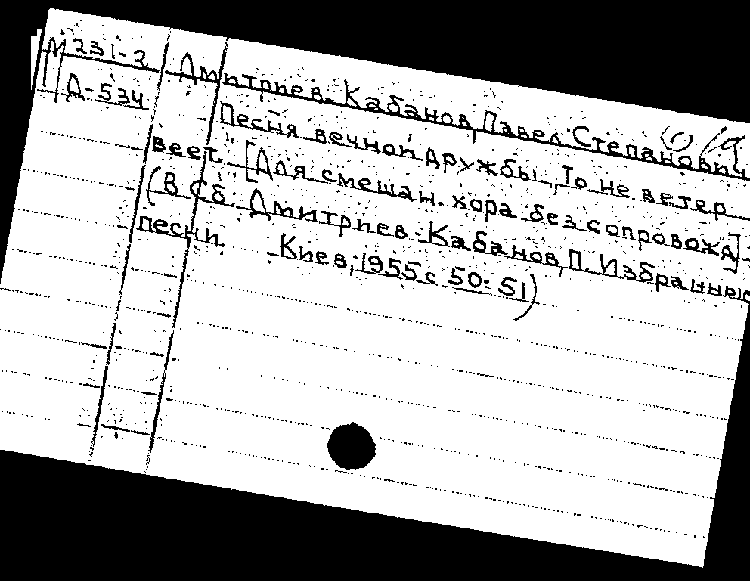 М 231-2
Д-534
Дмитриев-Кабанов, Павел Степанович
Песня вечной дружбы „То не ветер
веет" [Для смешан. хора без сопровожд]-
(В сб. Дмитриев-Кабанов, П. Избранные
песни. Киев, 1955 с 50-51)